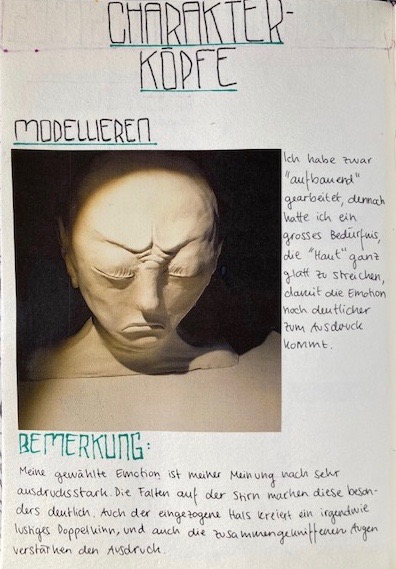 CHARAKTER-
KÖPFE
MODELLIEREN
Ich habe zwar
"aufbauend"
gearbeitet, dennoch
hatte ich ein
grosses Bedürfnis,
die "Haut" ganz
glatt zu streichen,
damit die Emotion
noch deutlicher
zum Ausdruck
kommt.
BEMERKUNG:
Meine gewählte Emotion ist meiner Meinung nach sehr
ausdrucksstark. Die Falten auf der Stirn machen diese beson-
ders deutlich. Auch der eingezogene Hals kreiert ein irgendwie
lustiges Doppelkinn, und auch die zusammengekniffenen Augen
verstärken den Ausdruck.